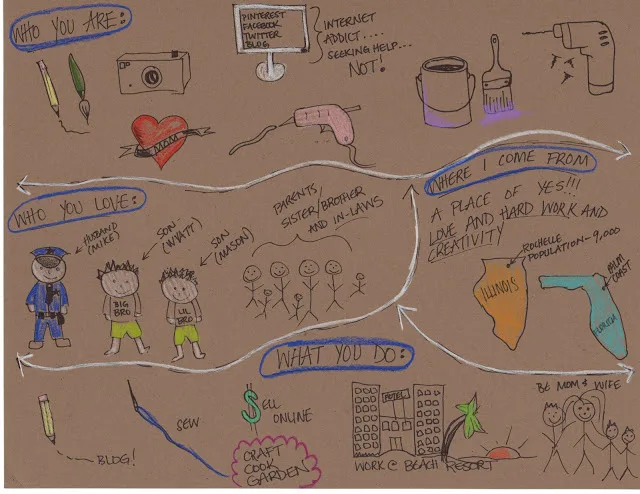 WHO YOU ARE:
PINTEREST
FACEBOOK
TWITTER
BLOG
INTERNET
ADDICT....
SEEKING HELP....
NOT!
MOM
WHERE I COME FROM
A PLACE OF YES!!!
LOVE AND HARD WORK AND
CREATIVITY
ROCHELLE
POPULATION-9,000
ILLINOIS
PALM
COAST
FLORIDA
WHO YOU LOVE:
HUSBAND
(MIKE)
SON
(WYATT)
SON
(MASON)
BIG
BRO
LIL
BRO
PARENTS
SISTER/BROTHER
AND IN-LAWS
WHAT YOU DO:
BLOG!
SEW
$ELL
ONLINE
CRAFT
COOK
GARDEN
HOTEL
WORK @ BEACH RESORT
BE MOM & WIFE